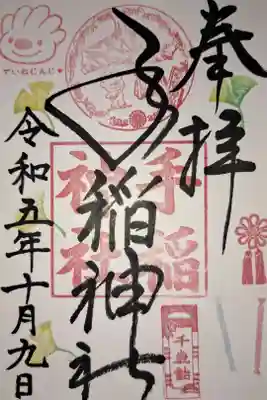 奉拝
手稲神社
手稲
神社
令和五年十月九日
ていねじんじゃ
千歳飴